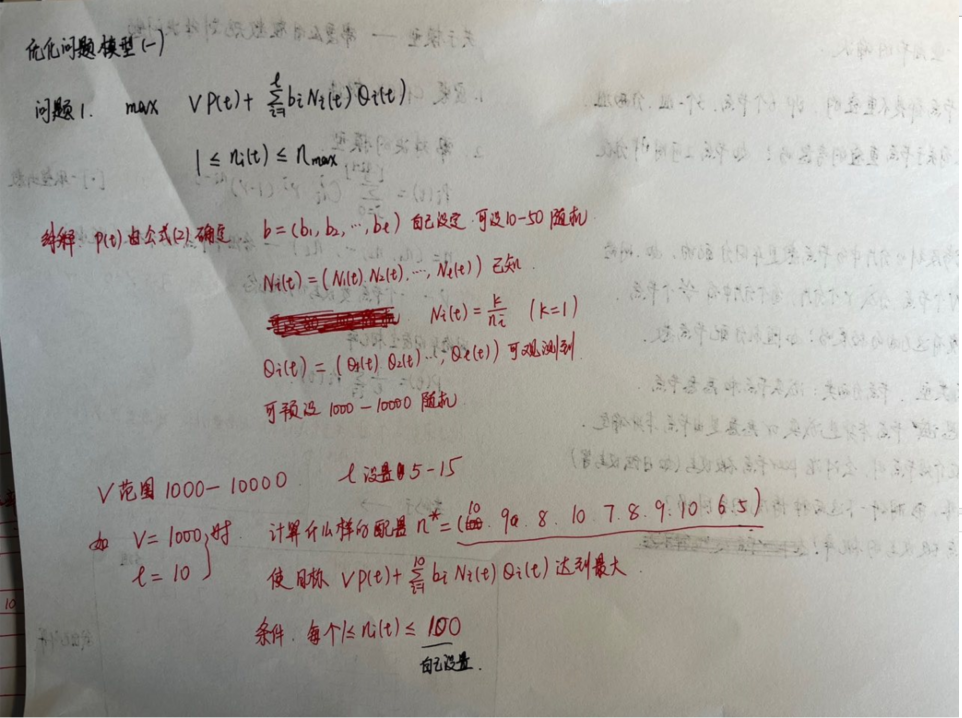 优化问题模型(一)
问题1. max VP(t) + ℓ∑i=1 bi Ni(t) Qi(t)
1 ≤ ni(t) ≤ nmax
P(t) 由公式(2)确定 b = (b1, b2, …, bℓ) 自己设定 可设10-50随机
Ni(t) = (N1(t), N2(t), …, Nℓ(t)) 已知
Ni(t) = k/ni (k=1)
Qi(t) = (Q1(t) Q2(t) …, Qℓ(t)) 可观测到
可预设 1000-10000 随机
V范围 1000-10000 ℓ设置5-15
如 V=1000, 时 计算什么样的配置 n* = (10. 9. 8. 10. 7. 8. 9. 10. 6. 5)
ℓ=10
使目标 VP(t) + 10∑i=1 bi Ni(t) Qi(t) 达到最大
条件. 每个1≤ni(t)≤100
自己设置.